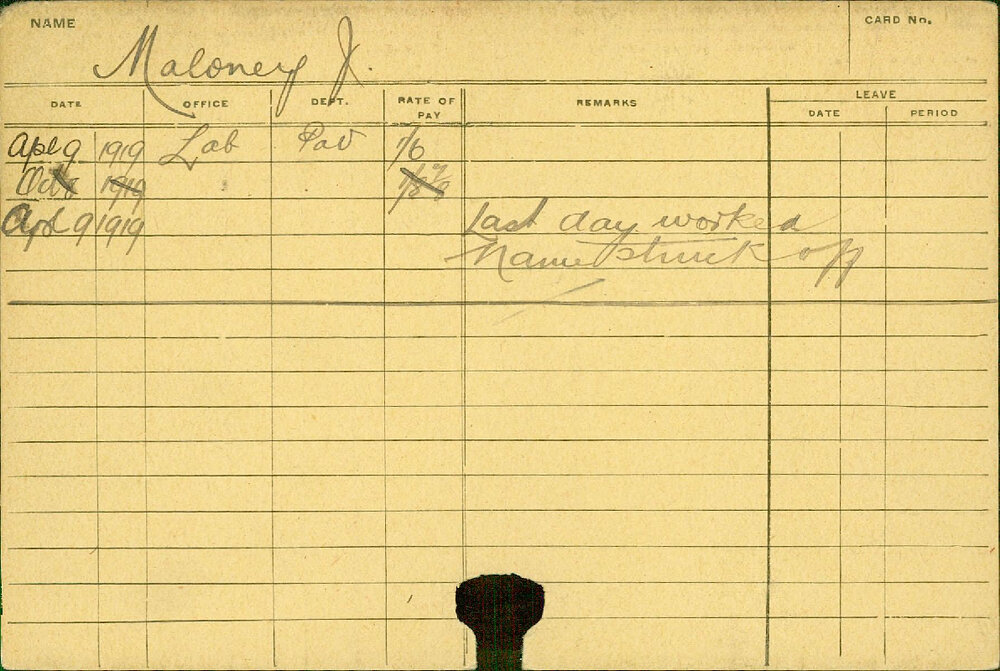 NAME
CARD No.
Maloney J.
DATE OFFICE DEPT. RATE OF PAY REMARKS LEAVE
DATE PERIOD
Apl 9 1919 Lab Pav 1/6
Oct 1919 1/8
Apl 9 1919 Last day worked
Name struck off